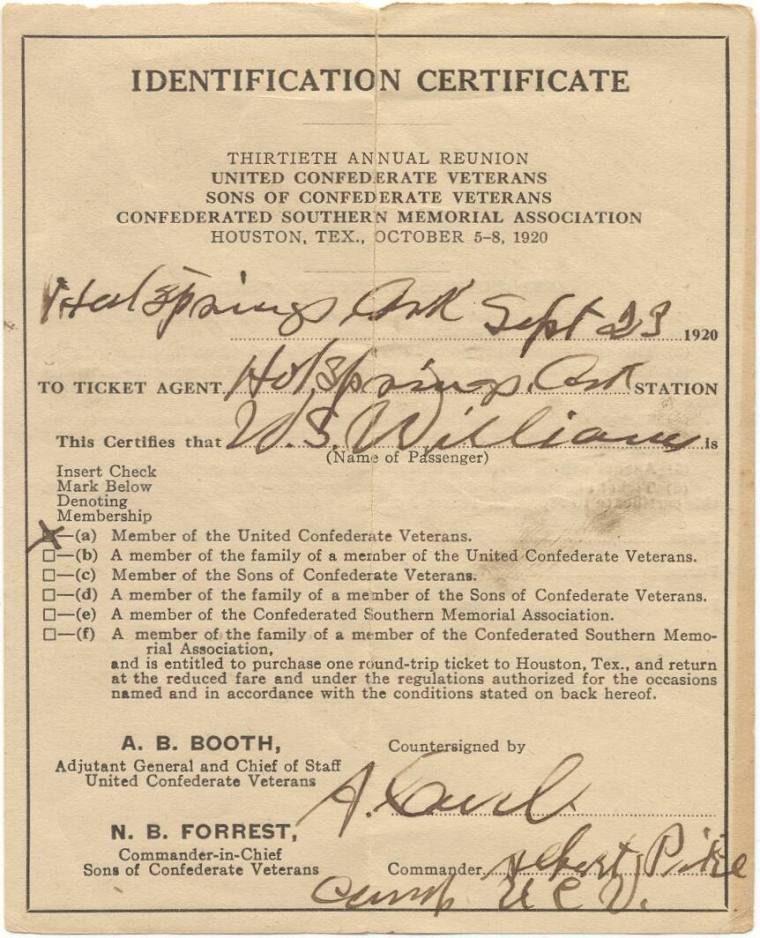 IDENTIFICATION CERTIFICATE
THIRTIETH ANNUAL REUNION
UNITED CONFEDERATE VETERANS
SONS OF CONFEDERATE VETERANS
CONFEDERATED SOUTHERN MEMORIAL ASSOCIATION
HOUSTON, TEX., OCTOBER 5-8, 1920
Hot Springs Ark Sept 23 1920
TO TICKET AGENT Hot Springs, Ark STATION
This Certifies that W. S. Williams is
(Name of Passenger)
Insert Check
Mark Below
Denoting
Membership
☒—(a) Member of the United Confederate Veterans.
☐—(b) A member of the family of a member of the United Confederate Veterans.
☐—(c) Member of the Sons of Confederate Veterans.
☐—(d) A member of the family of a member of the Sons of Confederate Veterans.
☐—(e) A member of the Confederated Southern Memorial Association.
☐—(f) A member of the family of a member of the Confederated Southern Memo-
rial Association,
and is entitled to purchase one round-trip ticket to Houston, Tex., and return
at the reduced fare and under the regulations authorized for the occasions
named and in accordance with the conditions stated on back hereof.
A. B. BOOTH,
Adjutant General and Chief of Staff
United Confederate Veterans
Countersigned by
A.
N. B. FORREST,
Commander-in-Chief
Sons of Confederate Veterans
Commander Albert Pike
Camp U C V.